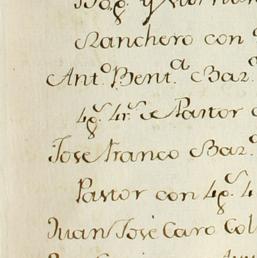 Ranchero con
Ant.º Bent.ª Bar.
4p.s 4r.s de Pastor
Jose Franco Bar.
Pastor con 4p.s 4
Juan José Caro Col